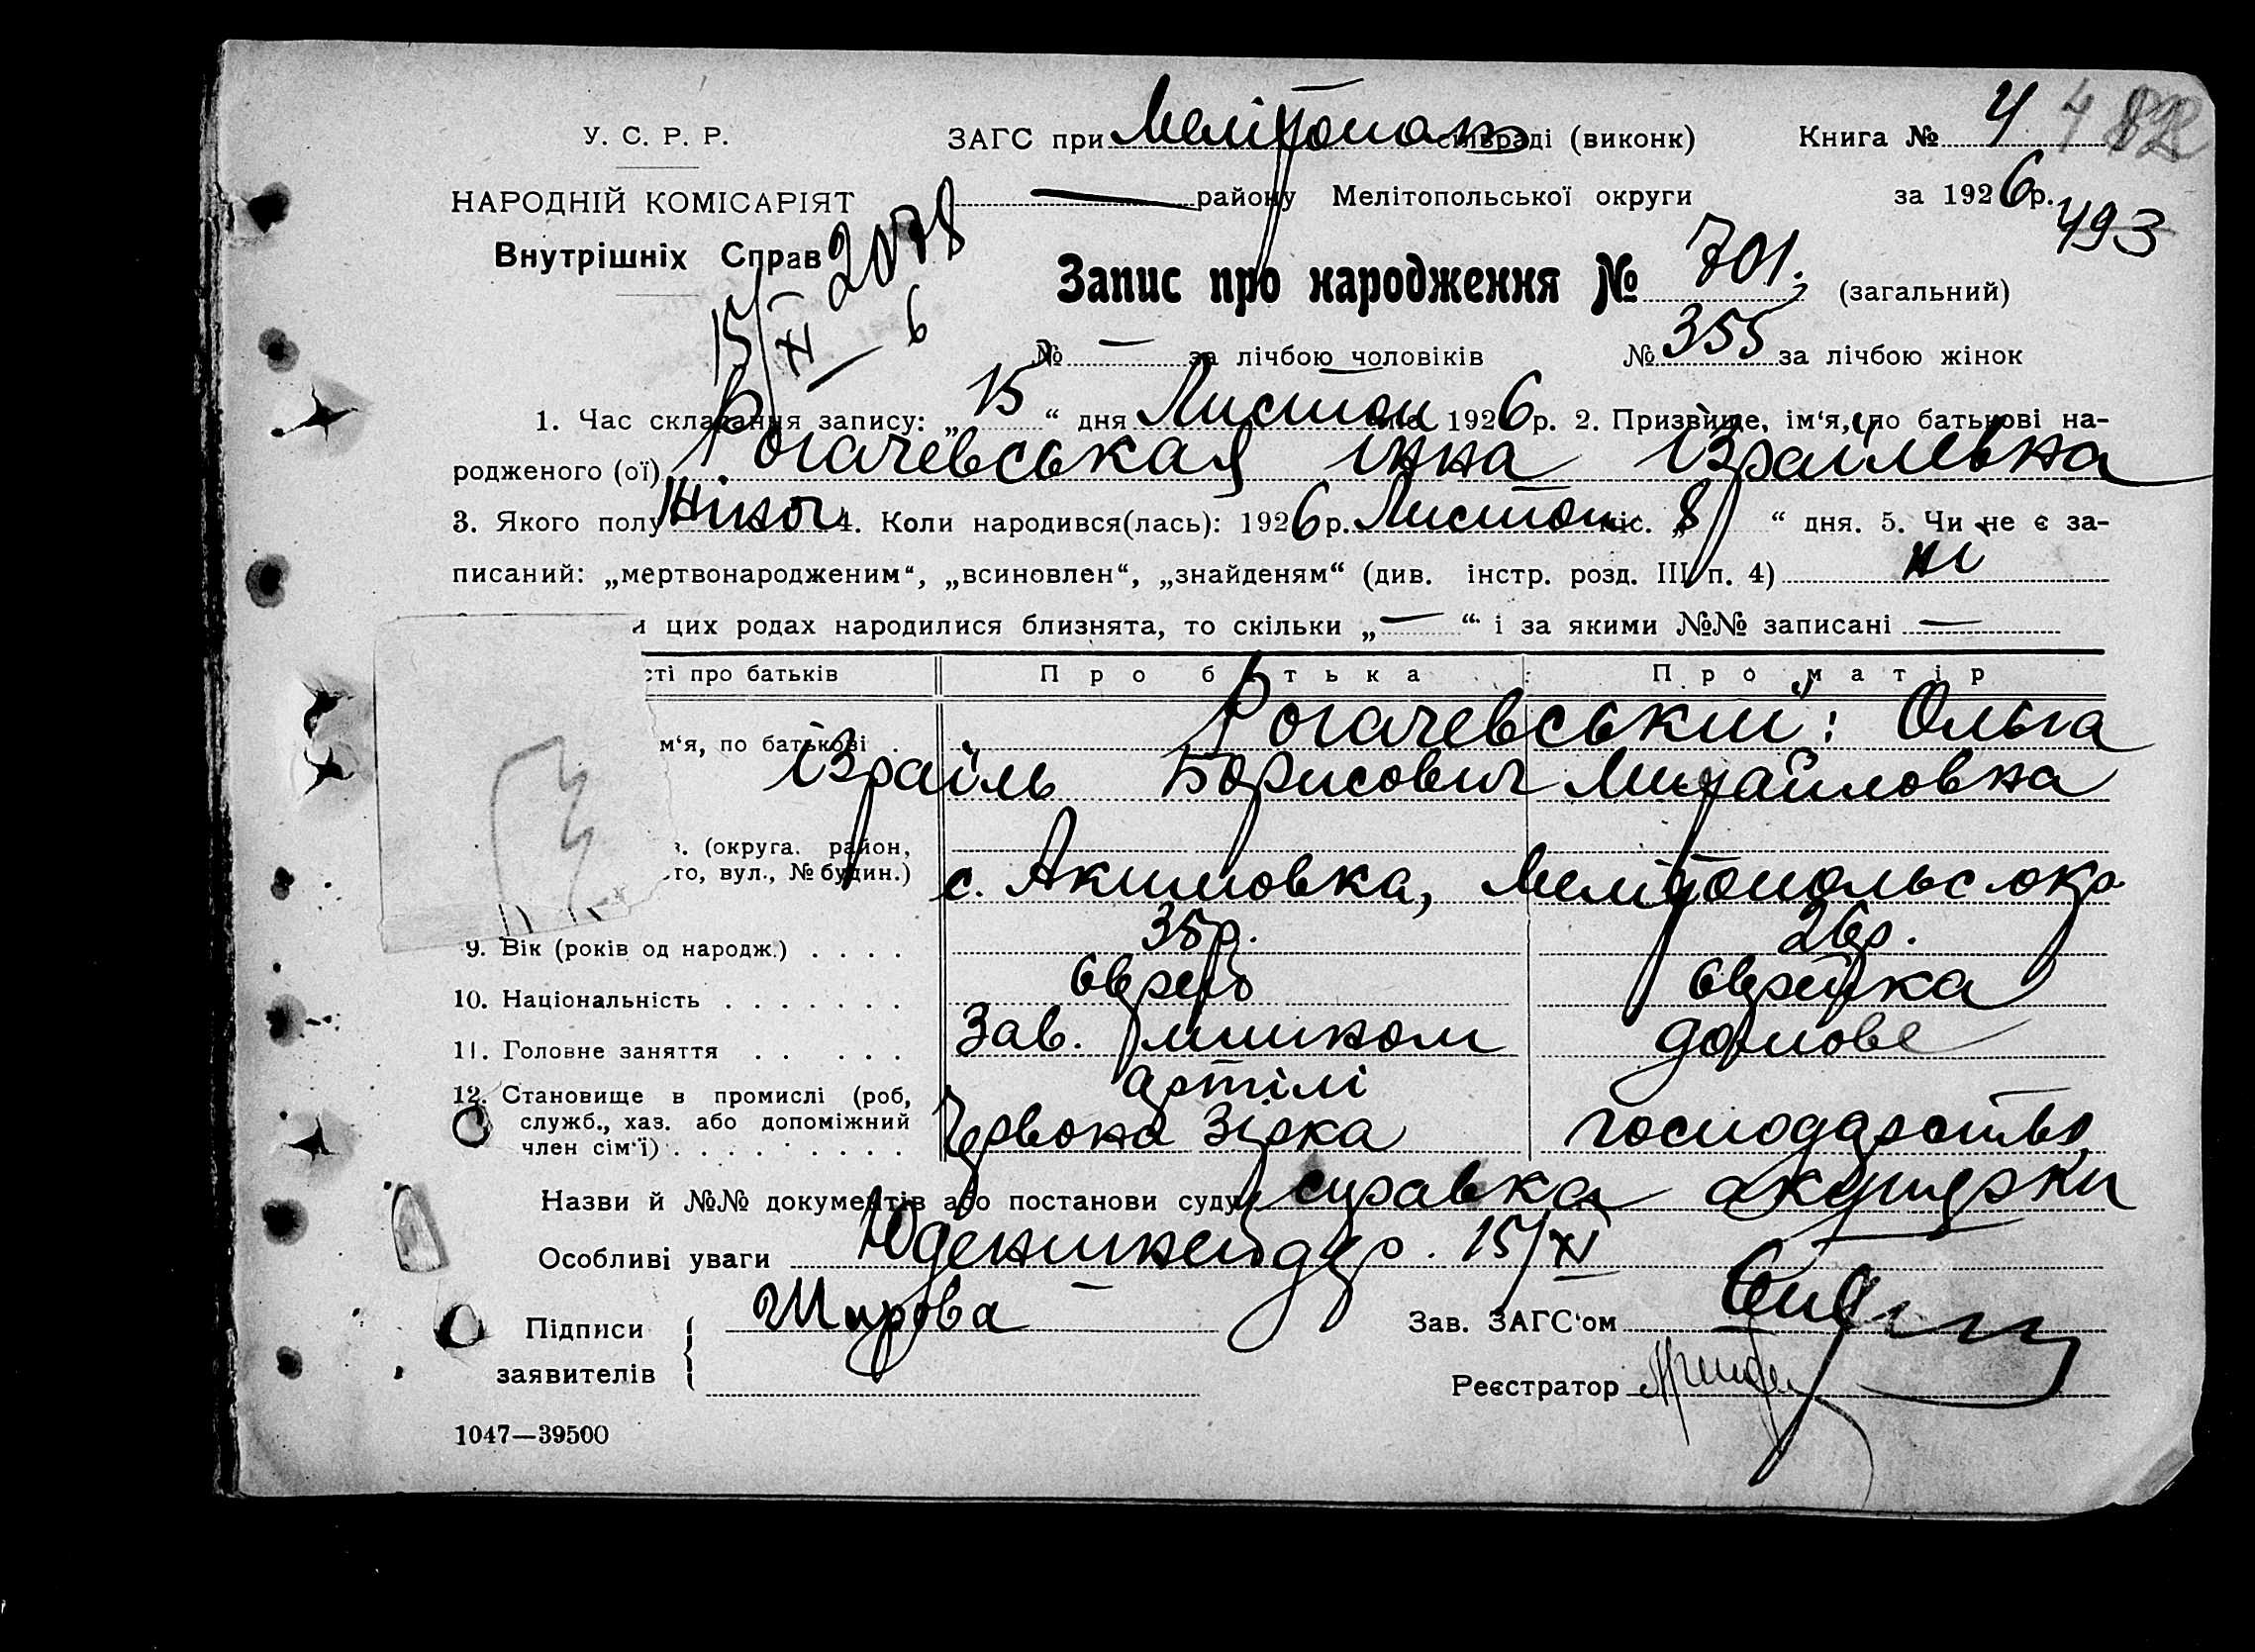 У. С. Р. Р.
ЗАГС при Мелітополь сільраді (виконк)
Книга № 4 4 82
НАРОДНІЙ КОМІСАРІЯТ
— району Мелітопольської округи
за 1926 р.
493
Внутрішніх Справ
2078
15/XI — 6
Запис про народження № 701. (загальний)
№ — за лічбою чоловіків № 355 за лічбою жінок
1. Час складання запису: „15“ дня Листоп 1926 р. 2. Призвище, ім‘я, по батькові на-
родженого (ої) Рогачевськая Інна Ізраїлевна
3. Якого полу Жіноч 4. Коли народився(лась): 1926 р. Листоп міс. „8“ дня. 5. Чи не є за-
писаний: „мертвонародженим“, „всиновлен“, „знайденям“ (див. інстр. розд. III п. 4) ні
и цих родах народилися близнята, то скільки „—“ і за якими №№ записані —
сті про батьків Про батька Про матір
Рогачевський: Ольга
м‘я, по батькові
Ізраїль Борисович Михайловна
(округа. район,
то, вул., № будин.)
с. Акимовка, Мелітопольс окр.
9. Вік (років од народж.) 35 р. 26 р.
10. Національність єврей єврейка
11. Головне заняття Зав. млином домове
артілі
12. Становище в промислі (роб,
служб., хаз. або допоміжний
член сім‘ї) Червона Зірка господарство
Назви й №№ документів або постанови суду справка акушерки
Особливі уваги 15/XI
Підписи
заявителів
Зав. ЗАГС‘ом
Реєстратор
1047—39500